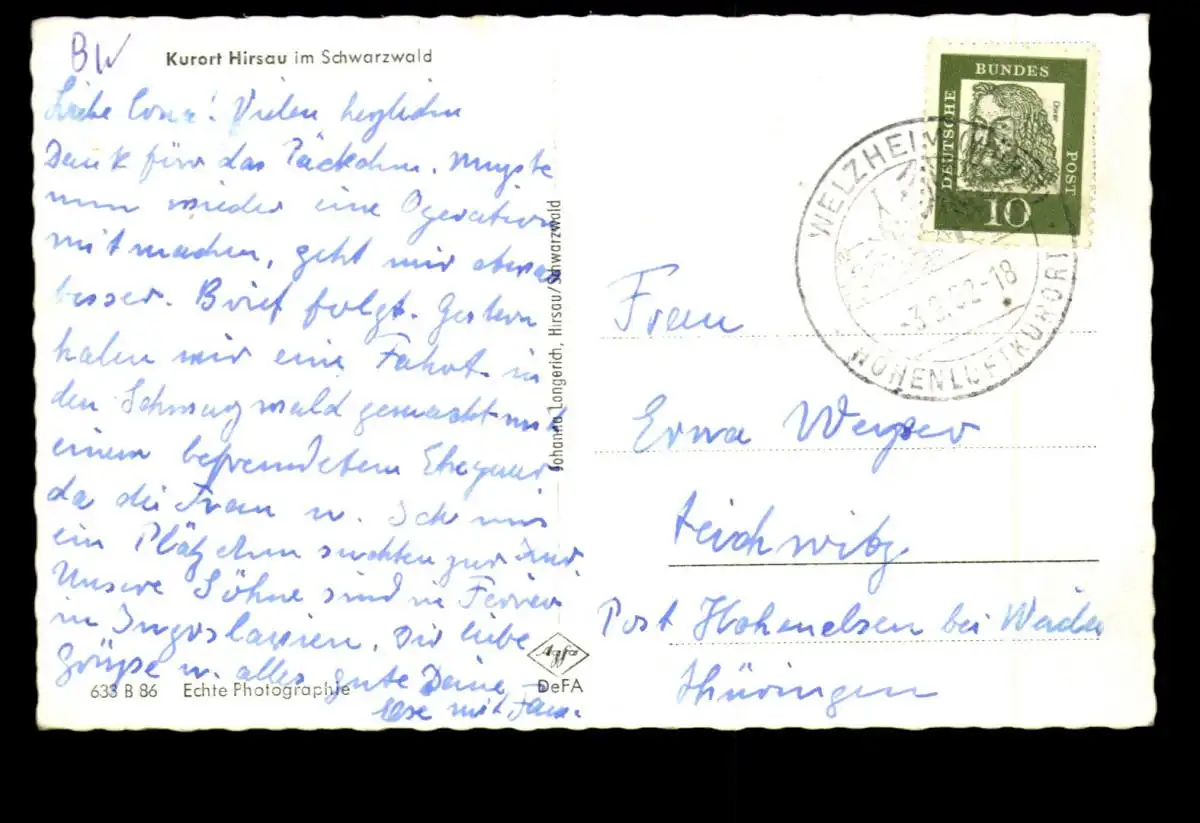 BW
Kurort Hirsau im Schwarzwald
Liebe Erna! Vielen herzlichen
Dank für das Päckchen. Musste
nun wieder eine Operation
mitmachen, geht mir etwas
besser. Brief folgt. Gestern
haben wir eine Fahrt in
den Schwarzwald gemacht mit
einem befreundetem Ehepaar
da die Frau u. Ich uns
ein Plätzchen suchten zur Kur.
Unsere Söhne sind in Ferien
in Jugoslavien. Dir liebe
Grüße u. alles gute Deine
Ilse mit Fam.
633 B 86 Echte Photographie
Johanna Longerich, Hirsau/Schwarzwald
Agfa
DeFA
DEUTSCHE
BUNDES
POST
Dürer
10
WELZHEIM
-3.8.62-18
HÖHENLUFTKURORT
Frau
Erna Weyser
Teichwitz
Post Hohenölsen bei Weida
Thüringen